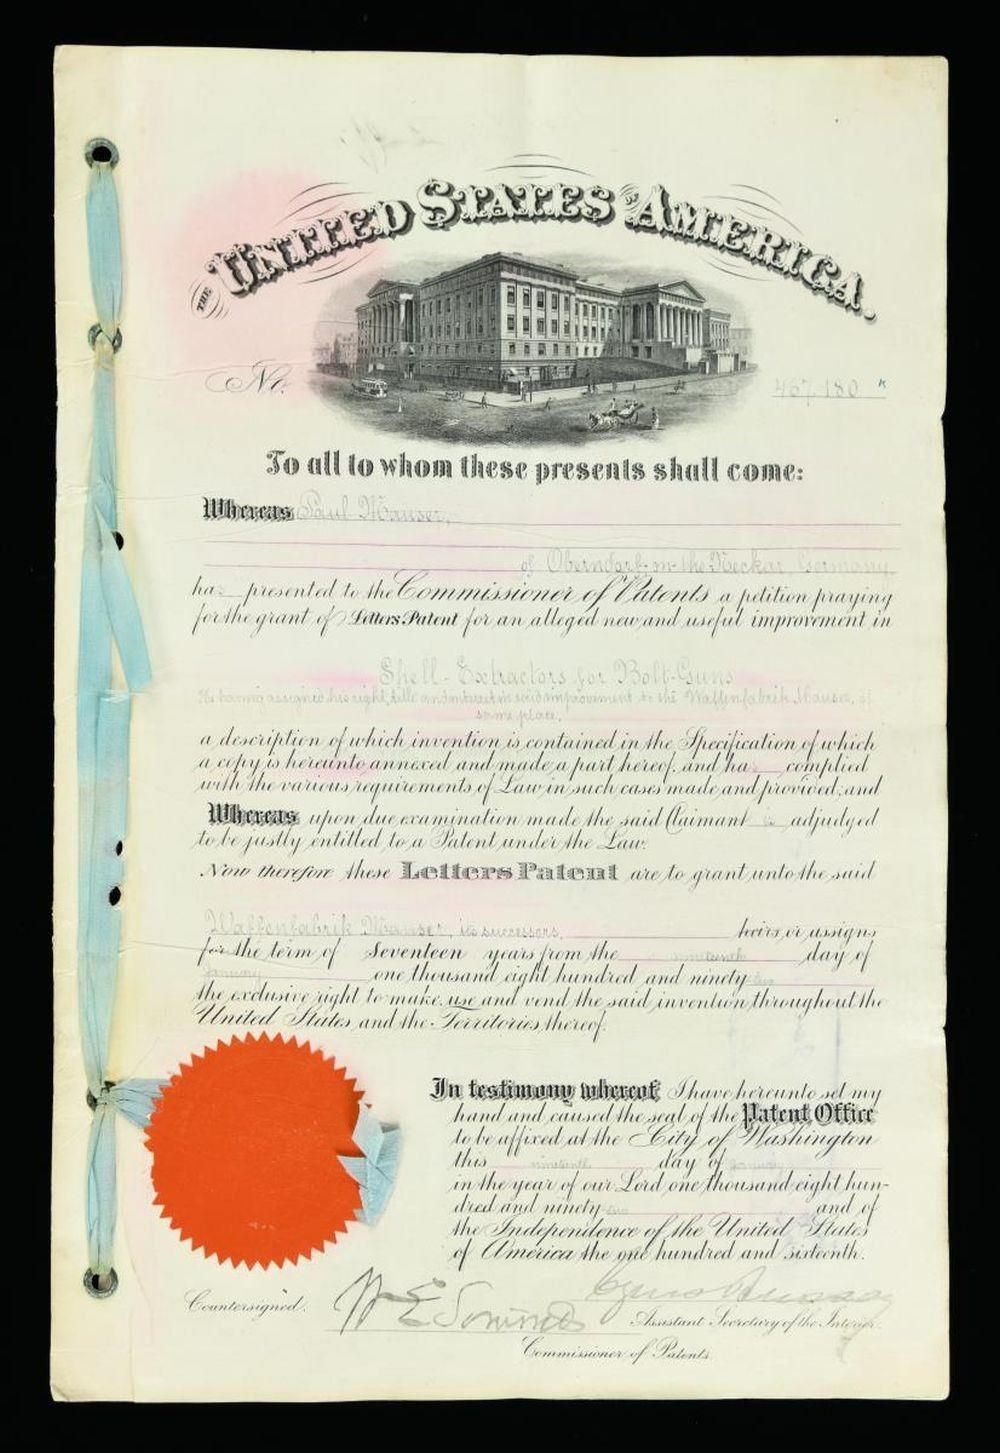 THE UNITED STATES OF AMERICA.
No. 467,180
To all to whom these presents shall come:
Whereas Paul Mauser,
of Oberndorf-on-the-Neckar, Germany,
has presented to the Commissioner of Patents a petition praying
for the grant of Letters Patent for an alleged new and useful improvement in
Shell-Extractors for Bolt-Guns
He having assigned his right, title and interest in said improvement to the Waffenfabrik Mauser, of
same place,
a description of which invention is contained in the Specification of which
a copy is hereunto annexed and made a part hereof, and has complied
with the various requirements of Law in such cases made and provided; and
Whereas upon due examination made the said Claimant is adjudged
to be justly entitled to a Patent under the Law.
Now therefore these Letters Patent are to grant unto the said
Waffenfabrik Mauser, its successors, heirs or assigns
for the term of Seventeen years from the nineteenth day of
January one thousand eight hundred and ninety two
the exclusive right to make, use and vend the said invention throughout the
United States and the Territories thereof.
In testimony whereof I have hereunto set my
hand and caused the seal of the Patent Office
to be affixed at the City of Washington
this nineteenth day of January
in the year of our Lord one thousand eight hun-
dred and ninety two and of
the Independence of the United States
of America the one hundred and sixteenth.
Cyrus Bussey
Countersigned. W E Simonds Assistant Secretary of the Interior.
Commissioner of Patents.